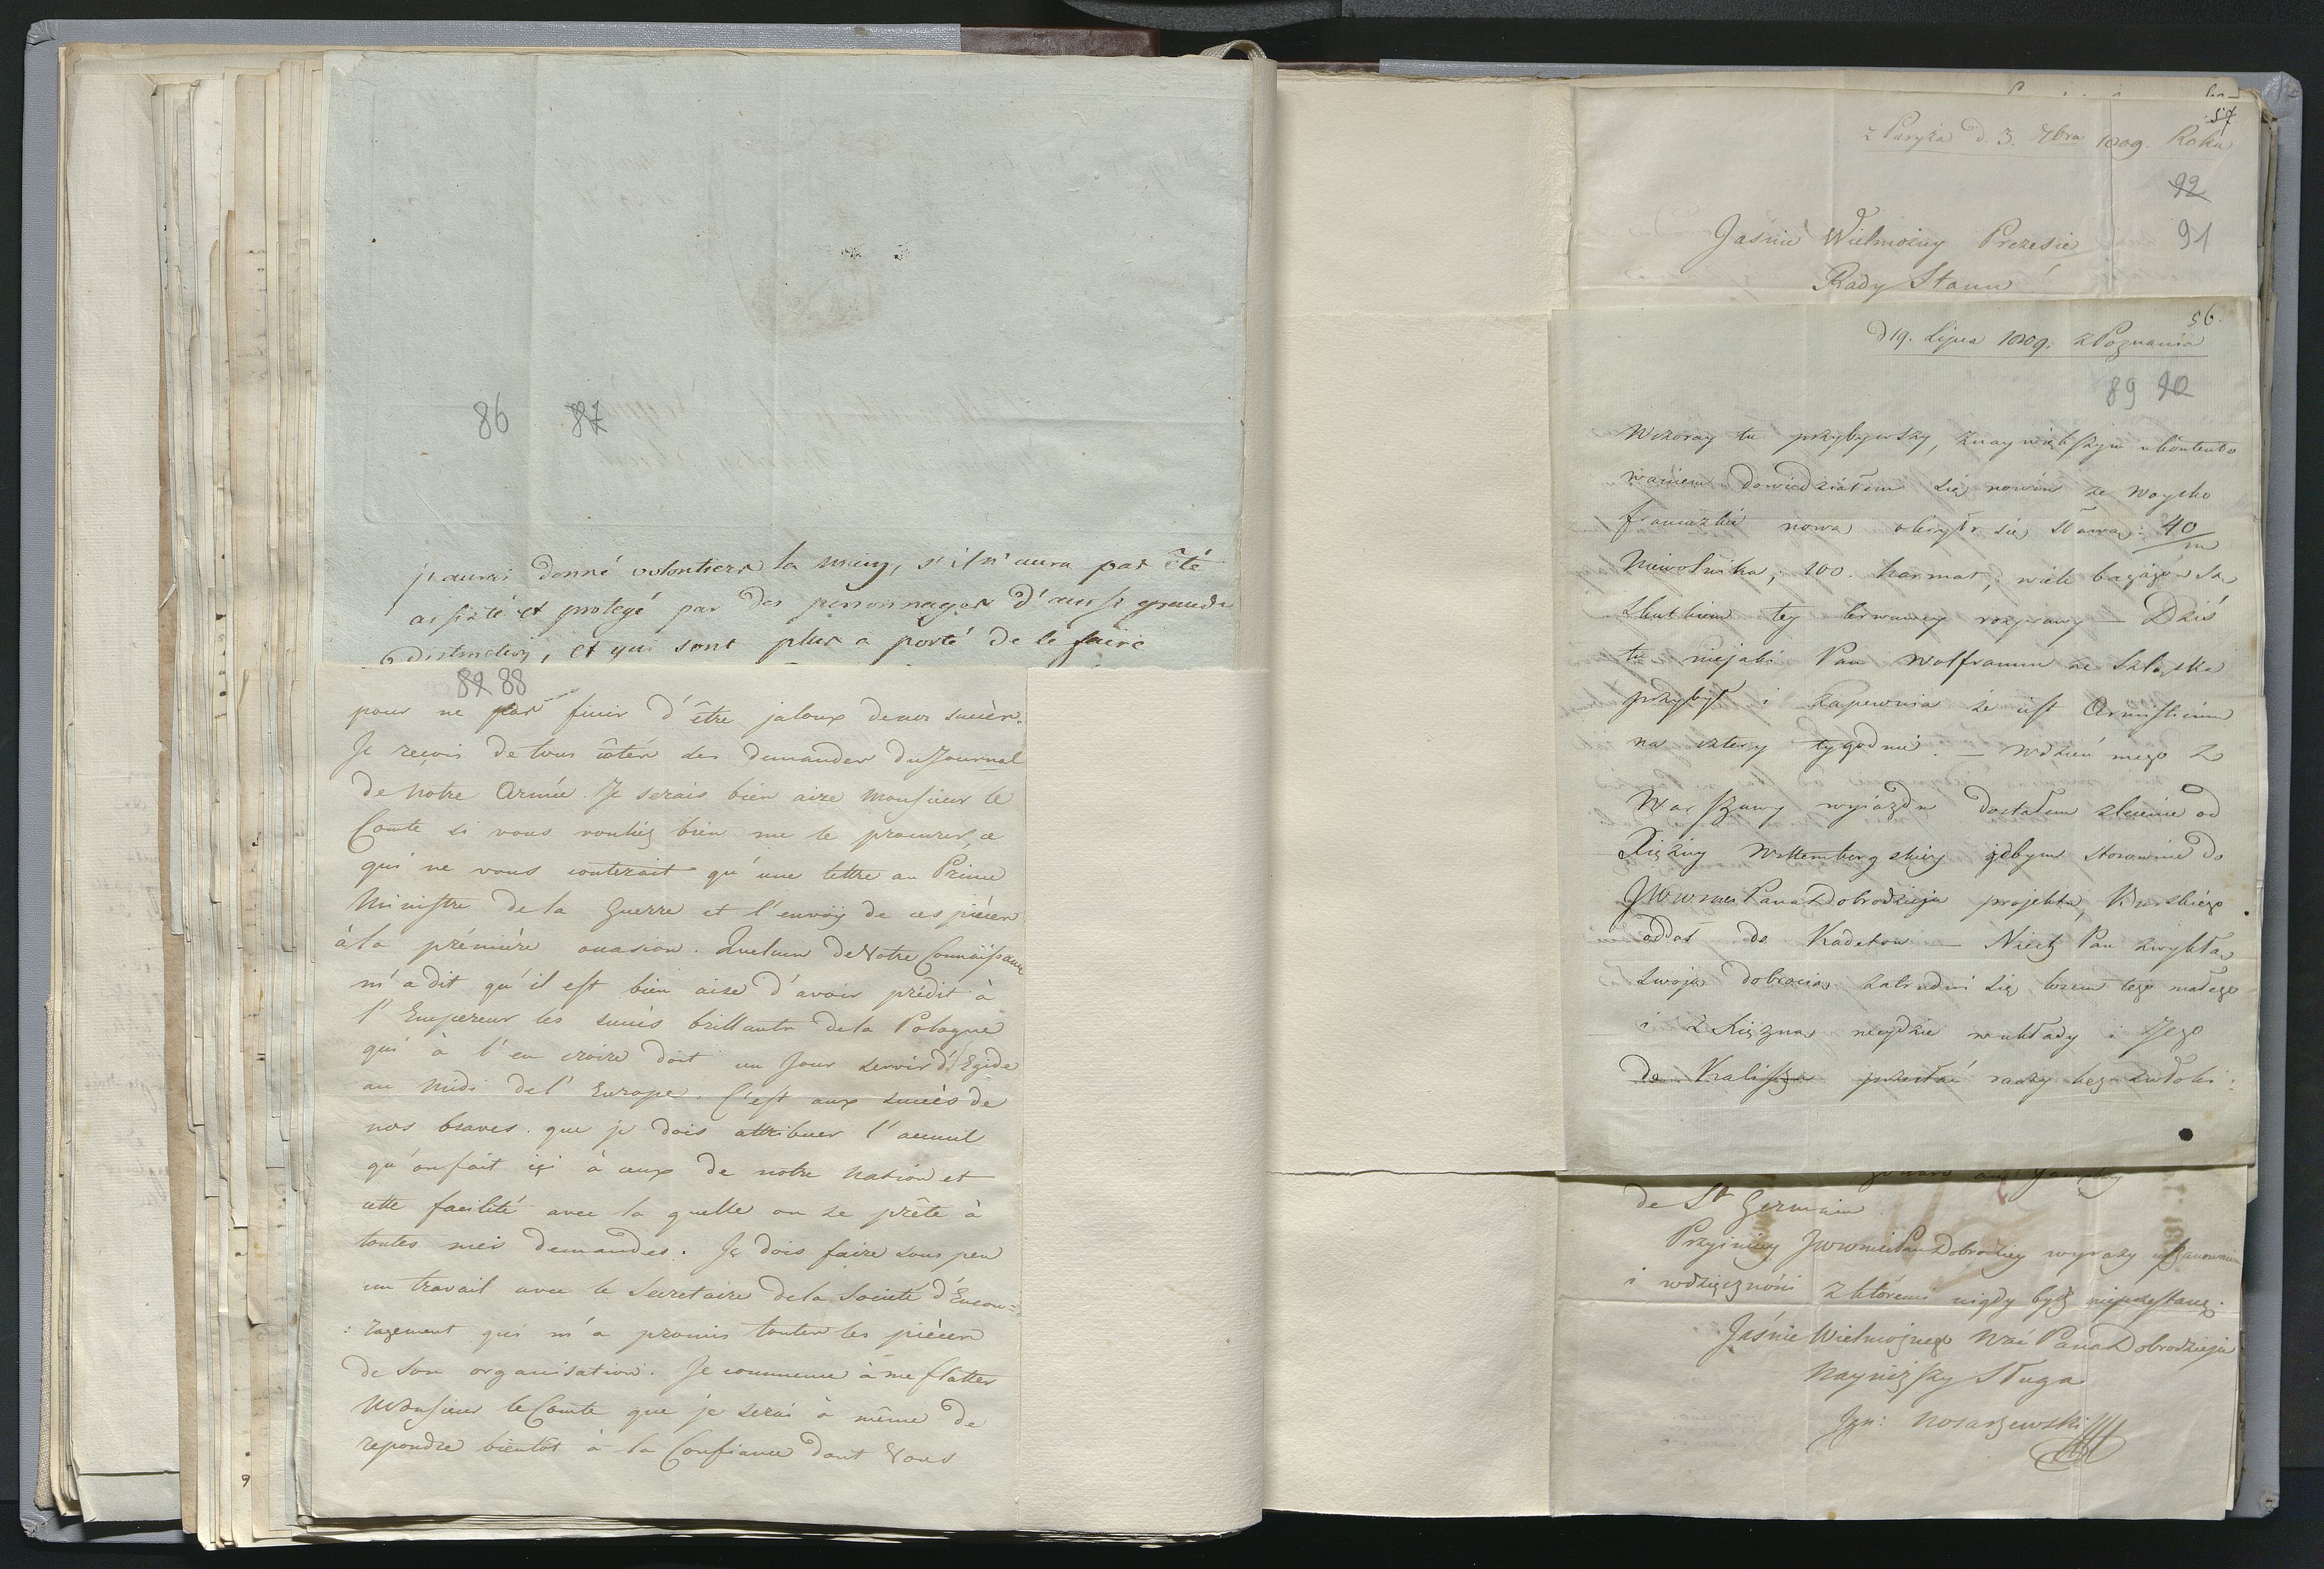 86 87
j'aurai donné volontiers la main, s'il n'aura pas été
assisté et protegé par des personnages d'aussi grande
distinction, et qui sont plus a porté de le faire
89 88
pour ne pas finir d'être jaloux de nos succès.
Je reçois de tous côtés des demandes du Journal
de nôtre Armée. Je serais bien aise Monsieur le
Comte si vous vouliez bien me le procurer, ce
qui ne vous couterait qu'une lettre au Prince
Ministre de la Guerre et l'envoÿ de ces pièces
à la prémière occasion. Quelcun de Votre Connaissance
m'a dit qu'il est bien aise d'avoir prédit à
l'Empereur les succès brillants de la Pologne
qui à l'en croire doit un Jour servir d'Egide
au Midi de l'Europe. C'est aux succès de
nos braves que je dois attribuer l'accueil
qu'on fait içi à ceux de notre Nation et
cette facilité avec la quelle on se prête à
toutes mes demandes. Je dois faire sous peu
un travail avec le Secretaire de la Societé d'Encou=
:ragement qui m'a promis toutes les pièces
de son organisation. Je commence à me flatter
Monsieur le Comte que je serai à même de
repondre bientôt à la Confiance dont Vous
57
z Paryża d. 3. 7bra 1809. Roku
92
91
Jaśnie Wielmożny Prezesie
Rady Stanu!
56.
d 19. Lipca 1809. z Poznania
89 90
Wczoray tu przybywszy, z naywiększym ukontento
waniem dowiedziałem się nowin ze woysko
francuzkie nową okryło się sławą: 40/m
Niewolnika, 100. harmat, wiele bagażów są
skutkiem tey krwawey rozprawy — Dziś
tu niejaki Pan Wolframm ze Szląska
przybył i zapewnia że jest Armistitium
na cztery tygodnie. — W dzień mego z
Warszawy wyiazdu dostałem zlecenie od
Xiężny Wirttembergskiey gdbym stosownie do
JWWMci Pana Dobrodzieja projektu, Kurskiego
oddał do Kadetów — Niech Pan zwykłą
swoją dobrocią zatrudni się losem tego małego
i z Xiężną weydzie w układy i Jego
do Kalisza przesłać raczy bez zwłoki:
de St Germain
Przyimiey JWWMciPan Dobrodziey wyrazy uszanowania
i wdzięcznósci z któremi nigdy bydź nieprzestanę.
Jaśnie Wielmożnego WMci Pana Dobrodzieja
Nayniższy Sługa
Ign: Nosarzewski